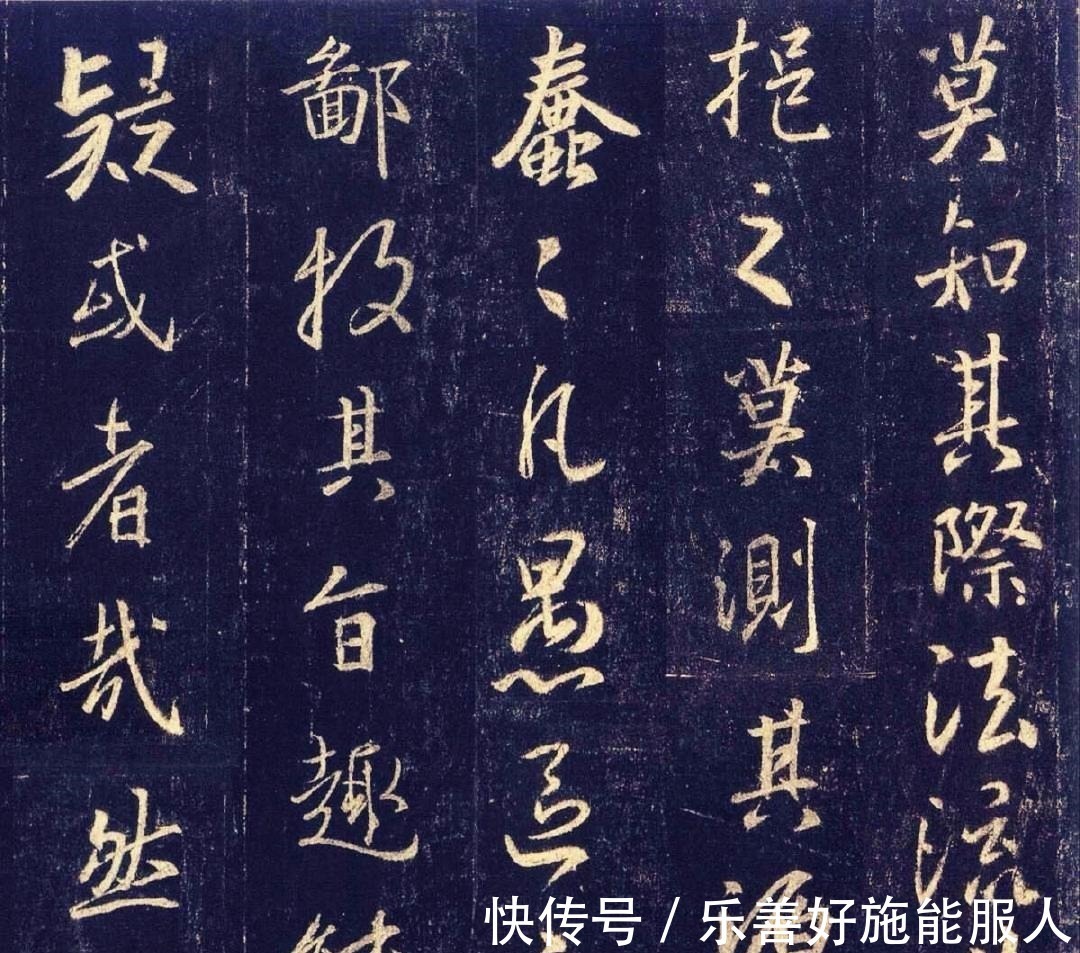 莫知其際法流
挹之莫測其源
蠢〻凡愚區
鄙投其旨趣
疑或者哉然
快传号 / 乐善好施能服人